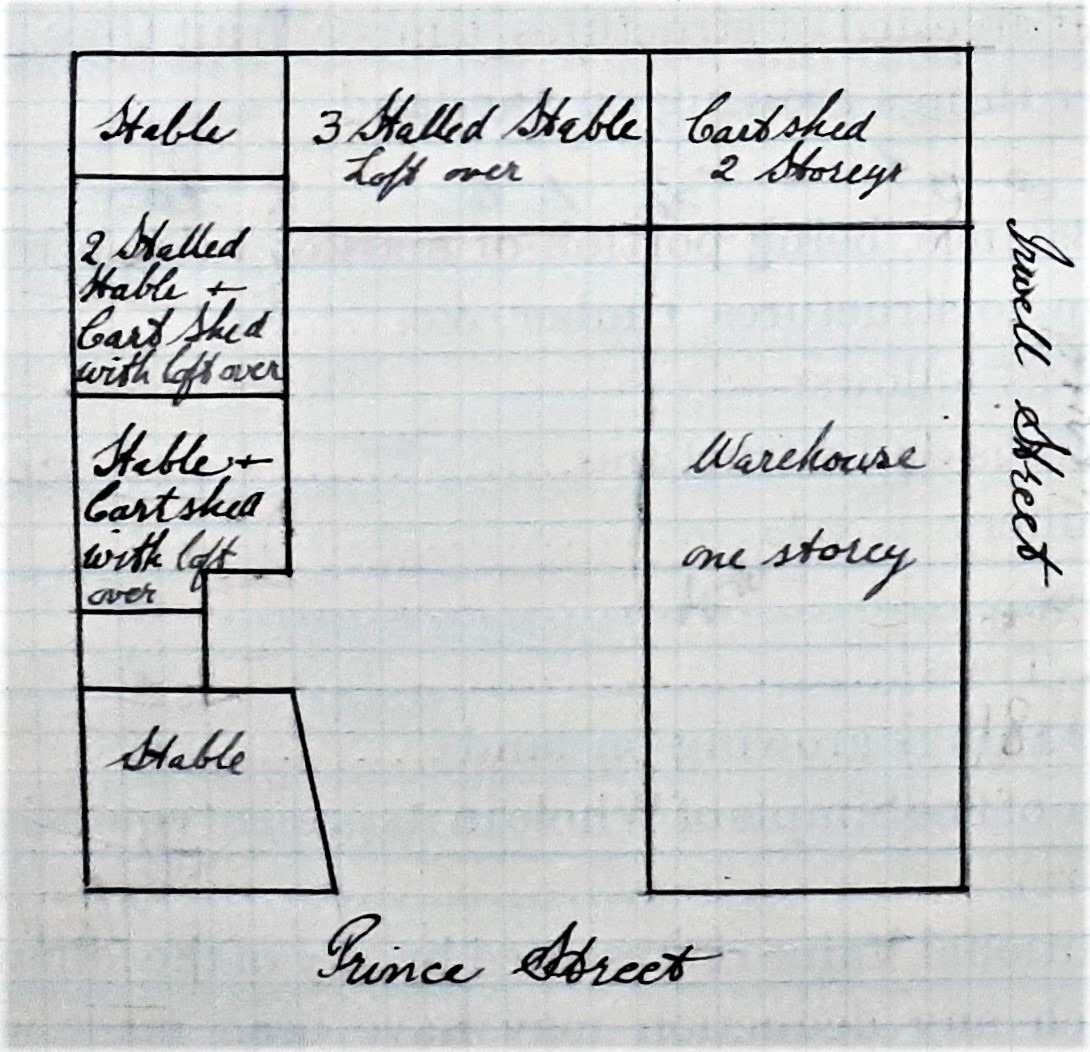 Stable
3 Stalled Stable
Loft over
Cart shed
2 Storeys
2 Stalled
Stable +
Cart Shed
with loft over
Stable +
Cart shed
with loft
over
Warehouse
one storey
Stable
Irwell Street
Prince Street